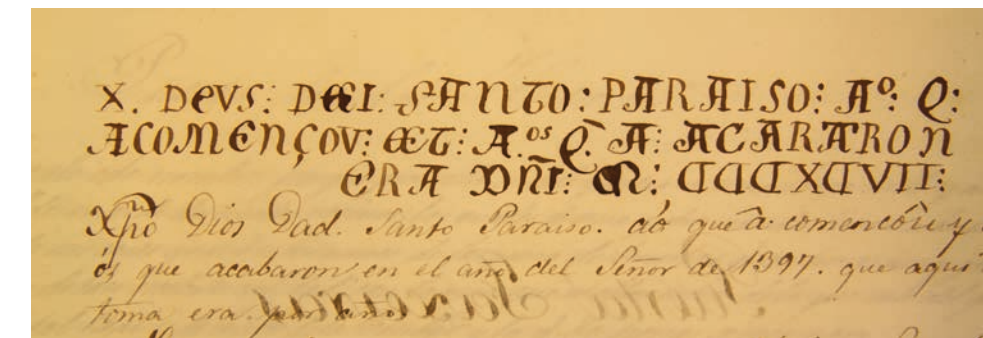 X. DEVS: DAI: SANTO: PARAISO: Aº: Q:
ACOMENÇOV: ET: A.os Q: A: ACARARON
ERA DÑI: M: CCCXCVII:
Xpo Dios Dad. Santo Paraiso. aó que á comencóu y
ós que acabaron en el año del Señor de 1397. que aqui
toma era por año